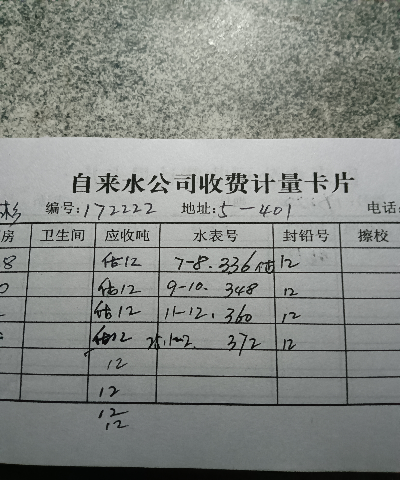 自来水公司收费计量卡片
杉 编号:172222 地址:5-401 电话:
房 卫生间 应收吨 水表号 封铅号 擦校
8 估12 7-8. 336估 12
0 估12 9-10. 348 12
估12 11-12. 360 12
估12 1-2. 372 12
12
12
12
12